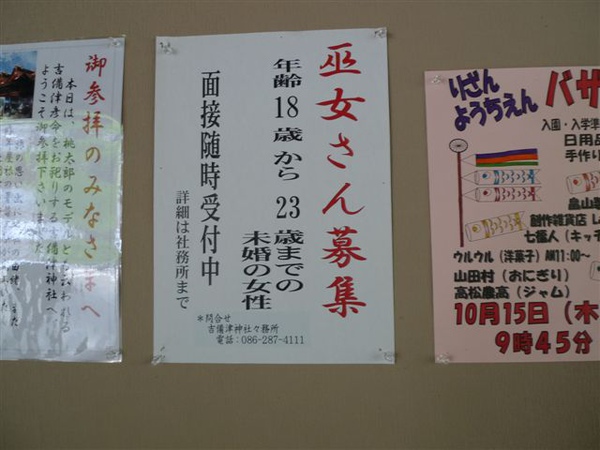 御参拝のみなさまへ
本日は、桃太郎のモデルと
吉備津彦命をお祀りする吉備津神社へ
ようこそ御参拝下さいました
巫女さん募集
年齢18歳から23歳までの
未婚の女性
面接随時受付中
詳細は社務所まで
*問合せ
吉備津神社々務所
電話:086-287-4111
りざん
ようちえん
バザ
入園・入学準
日用品
手作り
畠山
創作雑貨店
七個人(キッチ
ウルウル(洋菓子)AM11:00~
山田村(おにぎり)
高松農高(ジャム)
10月15日(木
9時45分